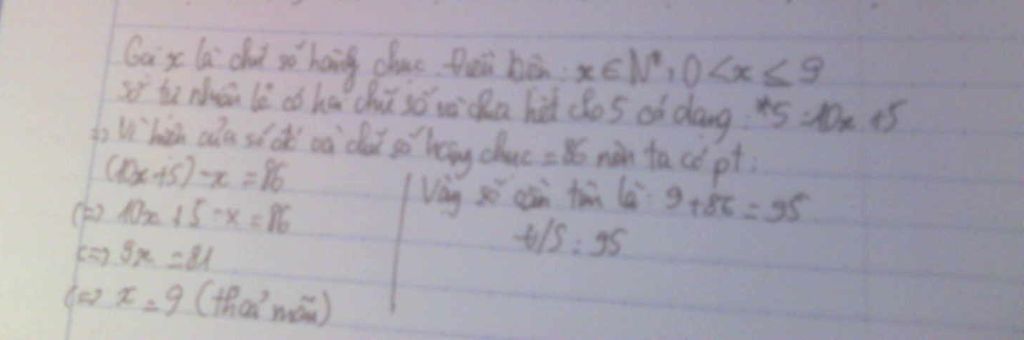 Gọi x là chữ số hàng chục. Điều kiện: x ∈ N*, 0 < x ≤ 9
Số tự nhiên lẻ có hai chữ số và chia hết cho 5 có dạng: *5 = 10x + 5
=> Vì hiệu của số đó và chữ số hàng chục = 86 nên ta có pt:
(10x+5) - x = 86
(=) 10x + 5 - x = 86
(=) 9x = 81
(=) x = 9 (thoả mãn)
Vậy số cần tìm là: 9 + 86 = 95
95